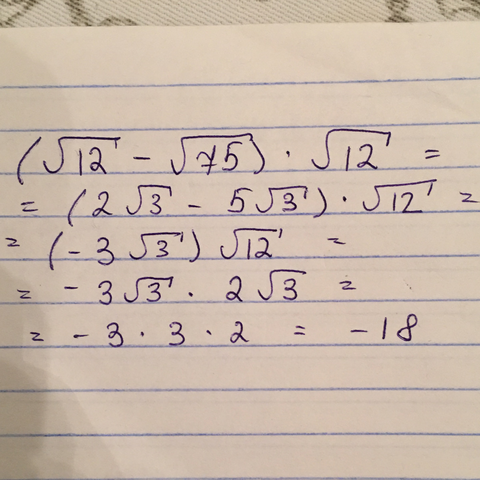 (√12 - √75) · √12 =
= (2√3 - 5√3) · √12 =
= (-3√3) √12 =
= -3√3 · 2√3 =
= -3 · 3 · 2 = -18